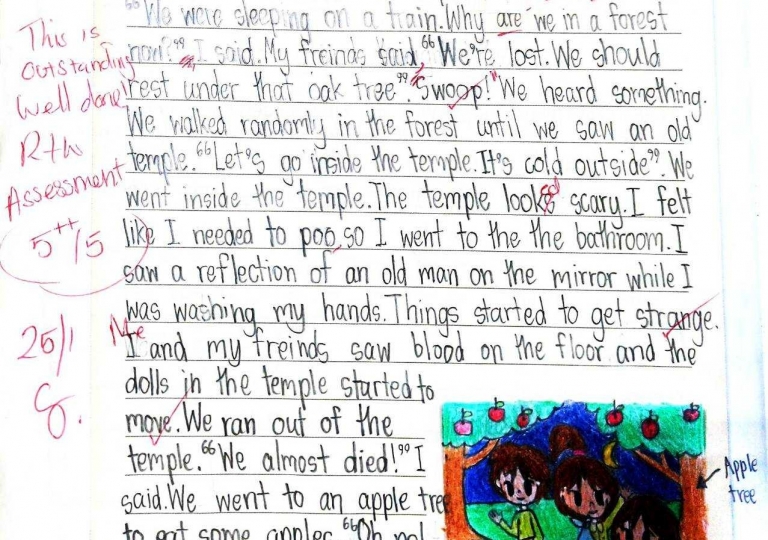 "We were sleeping on a train.Why are we in a forest
now?" I said.My freinds said,"We're lost.We should
rest under that oak tree". "Swoop!" We heard something.
We walked randomly in the forest until we saw an old
temple."Let's go inside the temple.It's cold outside". We
went inside the temple.The temple looked scary.I felt
like I needed to poo so I went to the the bathroom.I
saw a reflection of an old man on the mirror while I
was washing my hands.Things started to get strange.
I and my freinds saw blood on the floor and the
dolls in the temple started to
move.We ran out of the
temple."We almost died!" I
said.We went to an apple tree
to eat some apples "Oh no!
This is
outstanding
Well done!
R+W
Assessment
5++/5
25/1
Me
Apple
tree